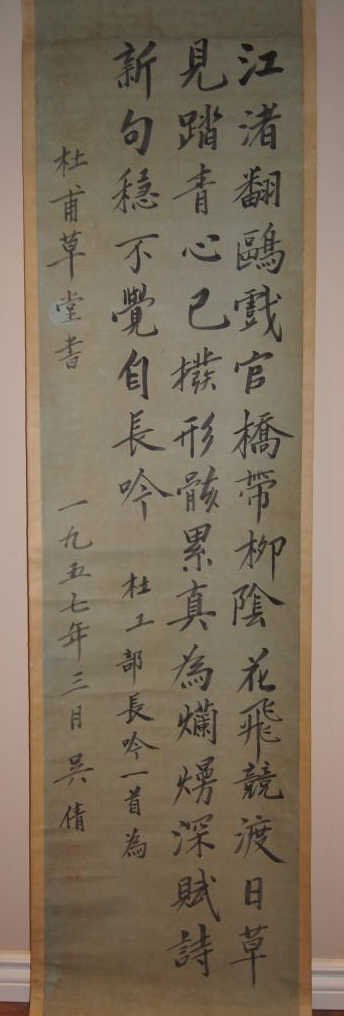 江渚翻鷗戲官橋帶柳陰花飛競渡日草
見踏青心已撥形骸累真為爛熳深賦詩
新句穩不覺自長吟
杜工部長吟一首為
杜甫草堂書 一九五七年三月 吳倩